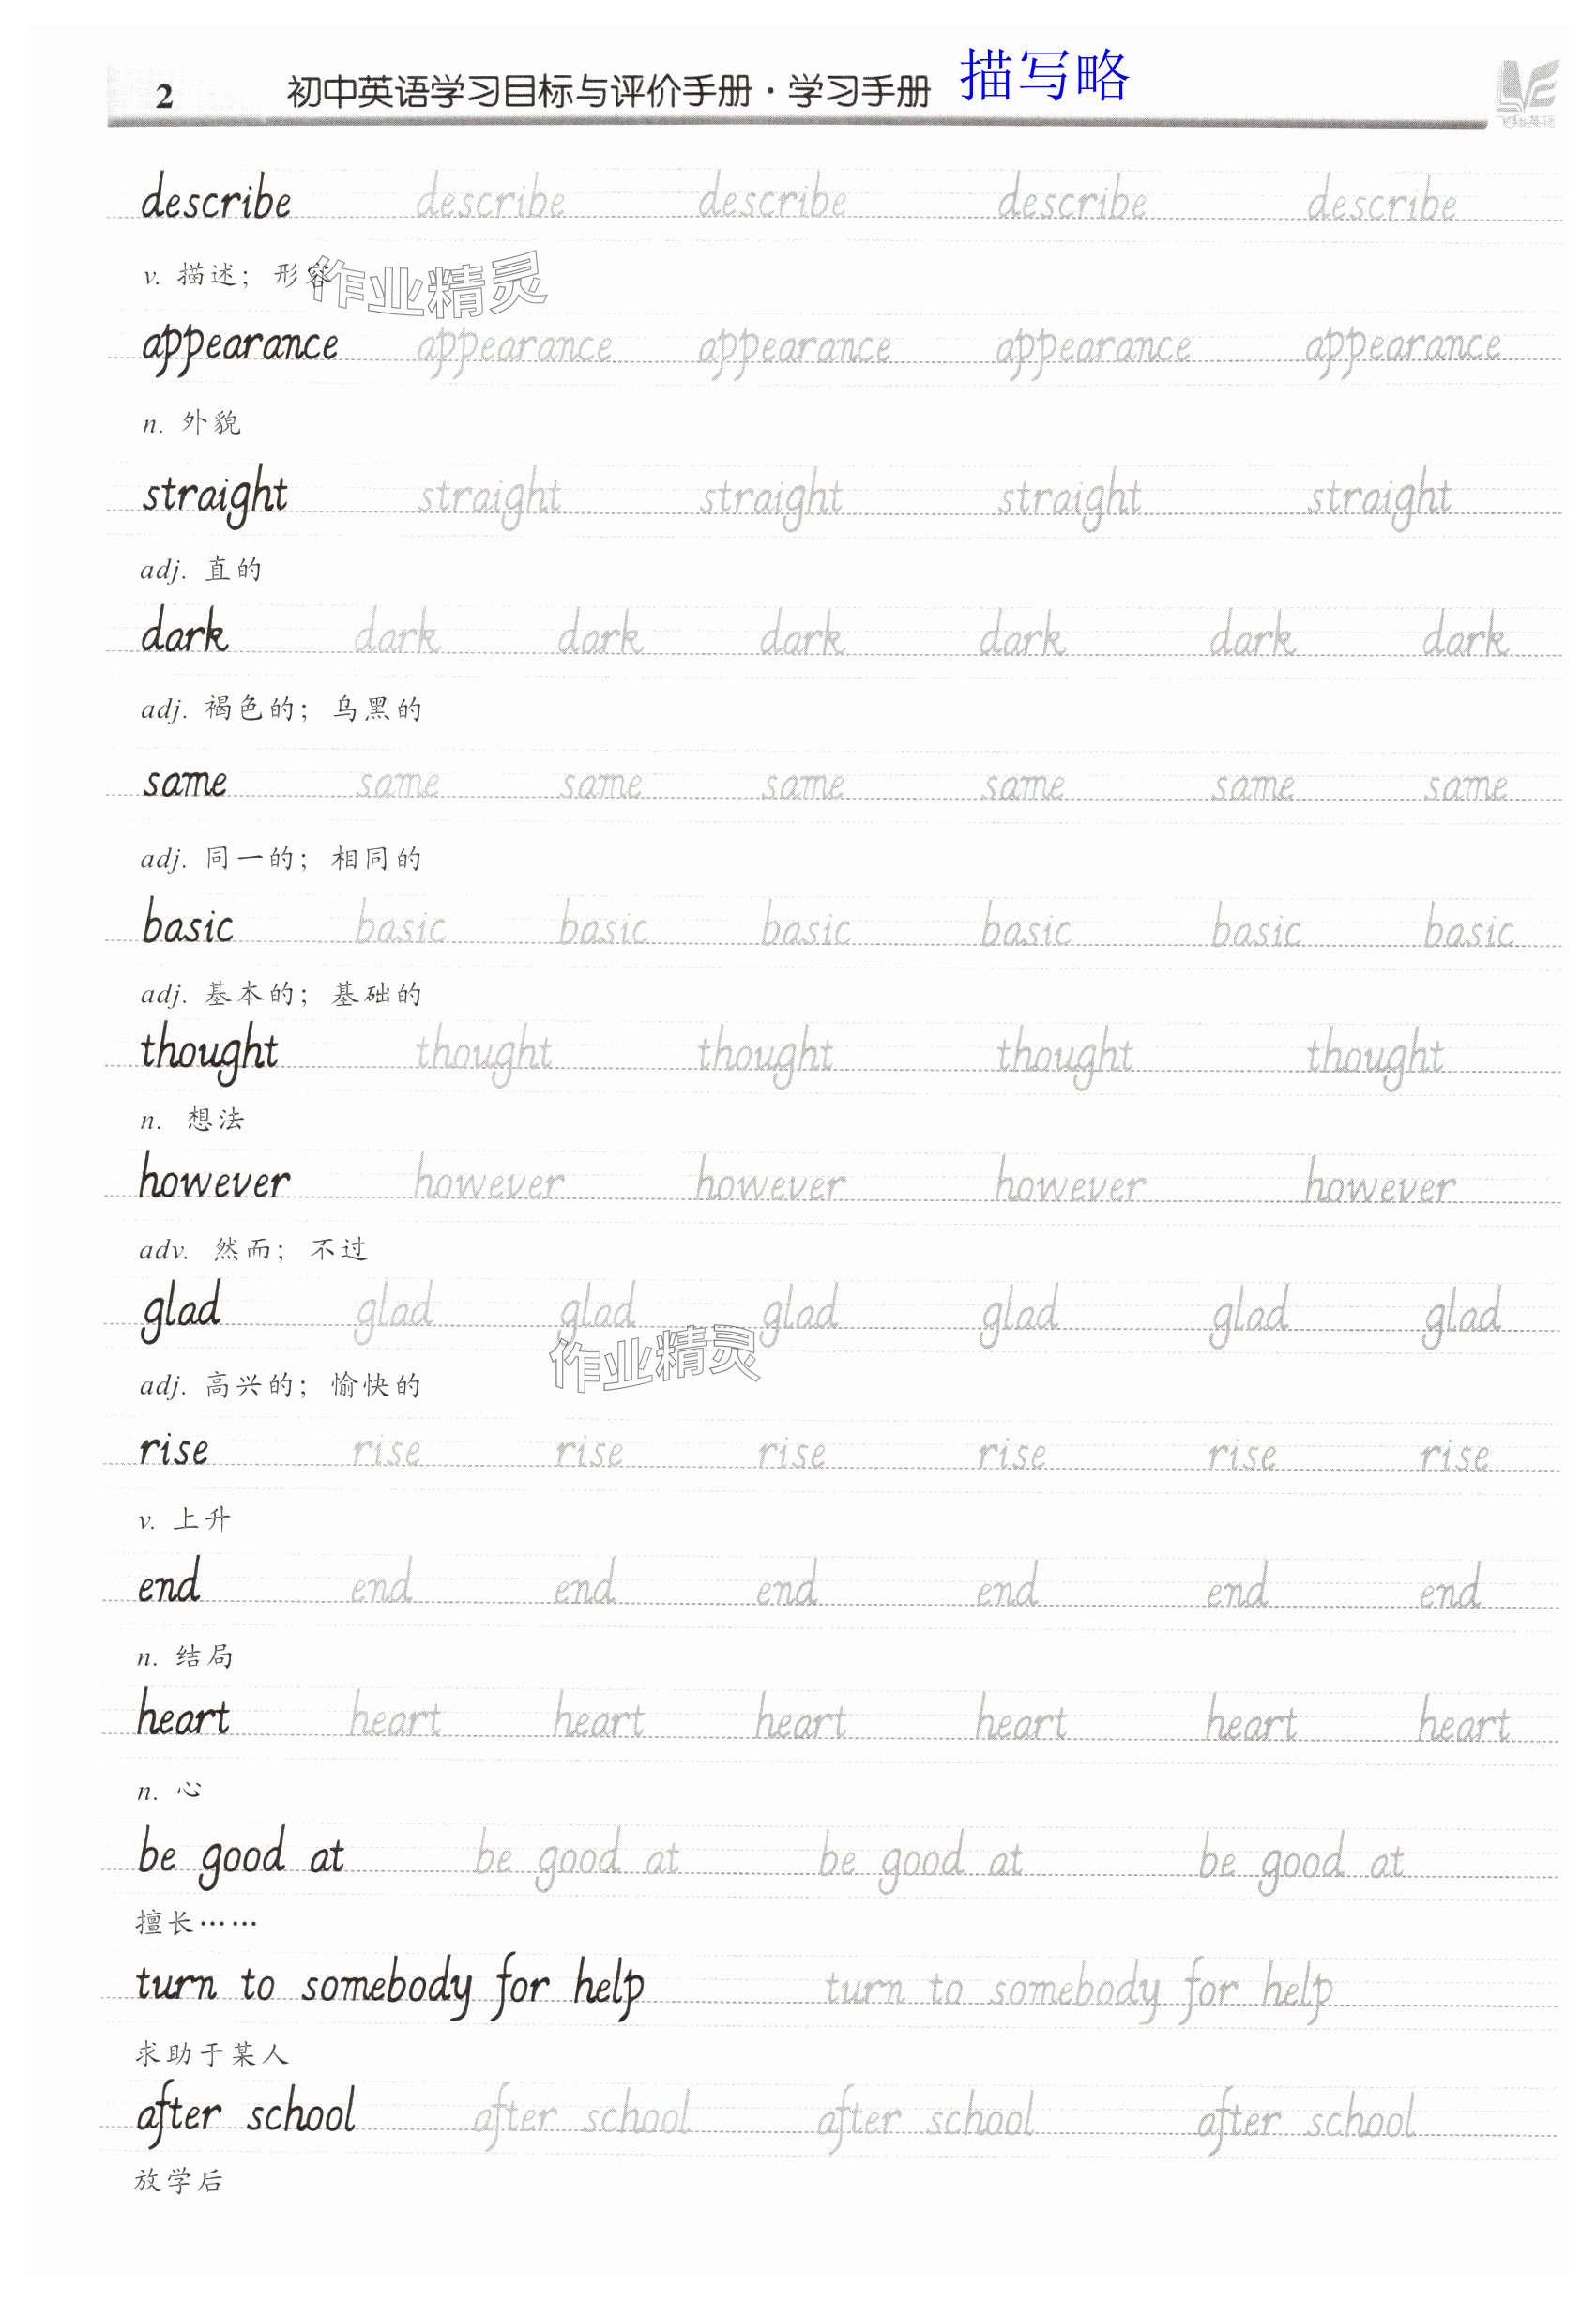 2 初中英语学习目标与评价手册·学习手册 描写略
describe describe describe describe describe
v. 描述；形容
作业精灵
appearance appearance appearance appearance appearance
n. 外貌
straight straight straight straight straight
adj. 直的
dark dark dark dark dark dark dark
adj. 褐色的；乌黑的
same same same same same same same
adj. 同一的；相同的
basic basic basic basic basic basic basic
adj. 基本的；基础的
thought thought thought thought thought
n. 想法
however however however however however
adv. 然而；不过
glad glad glad glad glad glad glad
作业精灵
adj. 高兴的；愉快的
rise rise rise rise rise rise rise
v. 上升
end end end end end end end
n. 结局
heart heart heart heart heart heart heart
n. 心
be good at be good at be good at be good at
擅长……
turn to somebody for help turn to somebody for help
求助于某人
after school after school after school after school
放学后